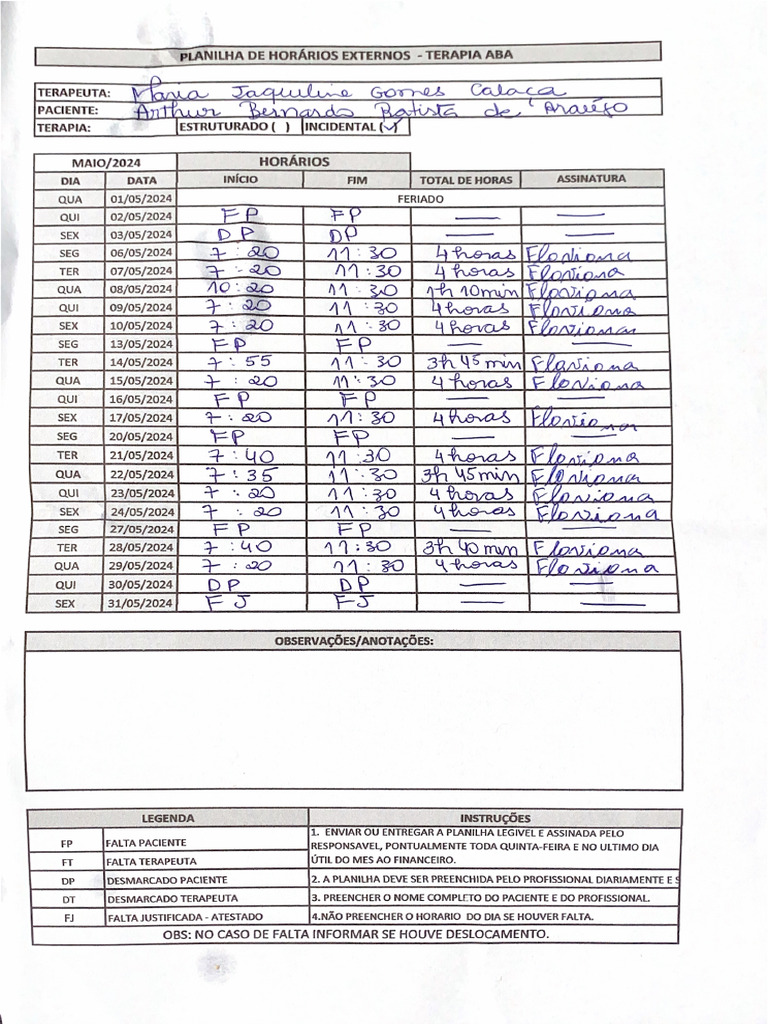 PLANILHA DE HORÁRIOS EXTERNOS - TERAPIA ABA
TERAPEUTA: Maria Jaqueline Gomes Calaça
PACIENTE: Arthur Bernardo Batista de Araújo
TERAPIA: ESTRUTURADO ( ) INCIDENTAL (✓)
MAIO/2024 HORÁRIOS
DIA DATA INÍCIO FIM TOTAL DE HORAS ASSINATURA
QUA 01/05/2024 FERIADO
QUI 02/05/2024 FP FP — —
SEX 03/05/2024 DP DP — —
SEG 06/05/2024 7:20 11:30 4 horas Flaviana
TER 07/05/2024 7:20 11:30 4 horas Flaviana
QUA 08/05/2024 10:20 11:30 1h 10min Flaviana
QUI 09/05/2024 7:20 11:30 4 horas Flaviana
SEX 10/05/2024 7:20 11:30 4 horas Flaviana
SEG 13/05/2024 FP FP — —
TER 14/05/2024 7:55 11:30 3h 45 min Flaviana
QUA 15/05/2024 7:20 11:30 4 horas Flaviana
QUI 16/05/2024 FP FP — —
SEX 17/05/2024 7:20 11:30 4 horas Flaviana
SEG 20/05/2024 FP FP — —
TER 21/05/2024 7:40 11:30 4 horas Flaviana
QUA 22/05/2024 7:35 11:30 3h 45min Flaviana
QUI 23/05/2024 7:20 11:30 4 horas Flaviana
SEX 24/05/2024 7:20 11:30 4 horas Flaviana
SEG 27/05/2024 FP FP — —
TER 28/05/2024 7:40 11:30 3h 40 min Flaviana
QUA 29/05/2024 7:20 11:30 4 horas Flaviana
QUI 30/05/2024 DP DP — —
SEX 31/05/2024 FJ FJ — —
OBSERVAÇÕES/ANOTAÇÕES:
LEGENDA INSTRUÇÕES
FP FALTA PACIENTE
FT FALTA TERAPEUTA
1. ENVIAR OU ENTREGAR A PLANILHA LEGIVEL E ASSINADA PELO
RESPONSAVEL, PONTUALMENTE TODA QUINTA-FEIRA E NO ULTIMO DIA
ÚTIL DO MES AO FINANCEIRO.
DP DESMARCADO PACIENTE 2. A PLANILHA DEVE SER PREENCHIDA PELO PROFISSIONAL DIARIAMENTE E S
DT DESMARCADO TERAPEUTA 3. PREENCHER O NOME COMPLETO DO PACIENTE E DO PROFISSIONAL.
FJ FALTA JUSTIFICADA - ATESTADO 4.NÃO PREENCHER O HORARIO DO DIA SE HOUVER FALTA.
OBS: NO CASO DE FALTA INFORMAR SE HOUVE DESLOCAMENTO.